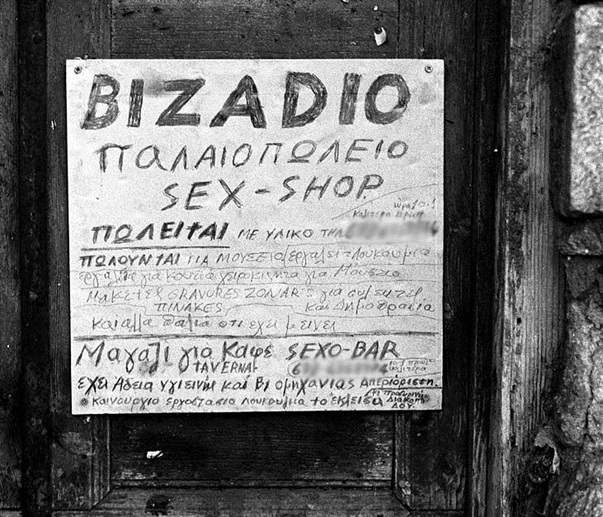 ΒΙΖΑDΙΟ
ΠΑΛΑΙΟΠΩΛΕΙΟ
SEX-SHOP
ΠΩΛΕΙΤΑΙ ΜΕ ΥΛΙΚΟ ΤΗΛ
ΠΩΛΟΥΝΤΑΙ ΓΙΑ ΜΟΥΣΕΙΟ εργαλεια Λουκουμια
εργαλεια για κουπια χειροκινητα για Μουσειο
Μακετες GRAVURES ZONAR'S για συλλεκτες
ΠΙΝΑΚΕΣ και Δημοπρασια
και αλλα παλια οτι εχει μεινει
Μαγαζι για Καφε SEXO-BAR
TAVERNA
εχει Αδεια υγιεινη και Βιομηχανιας απεριοριστη
καινουργιο εργοστασιο λουκουμια το εκλεισα